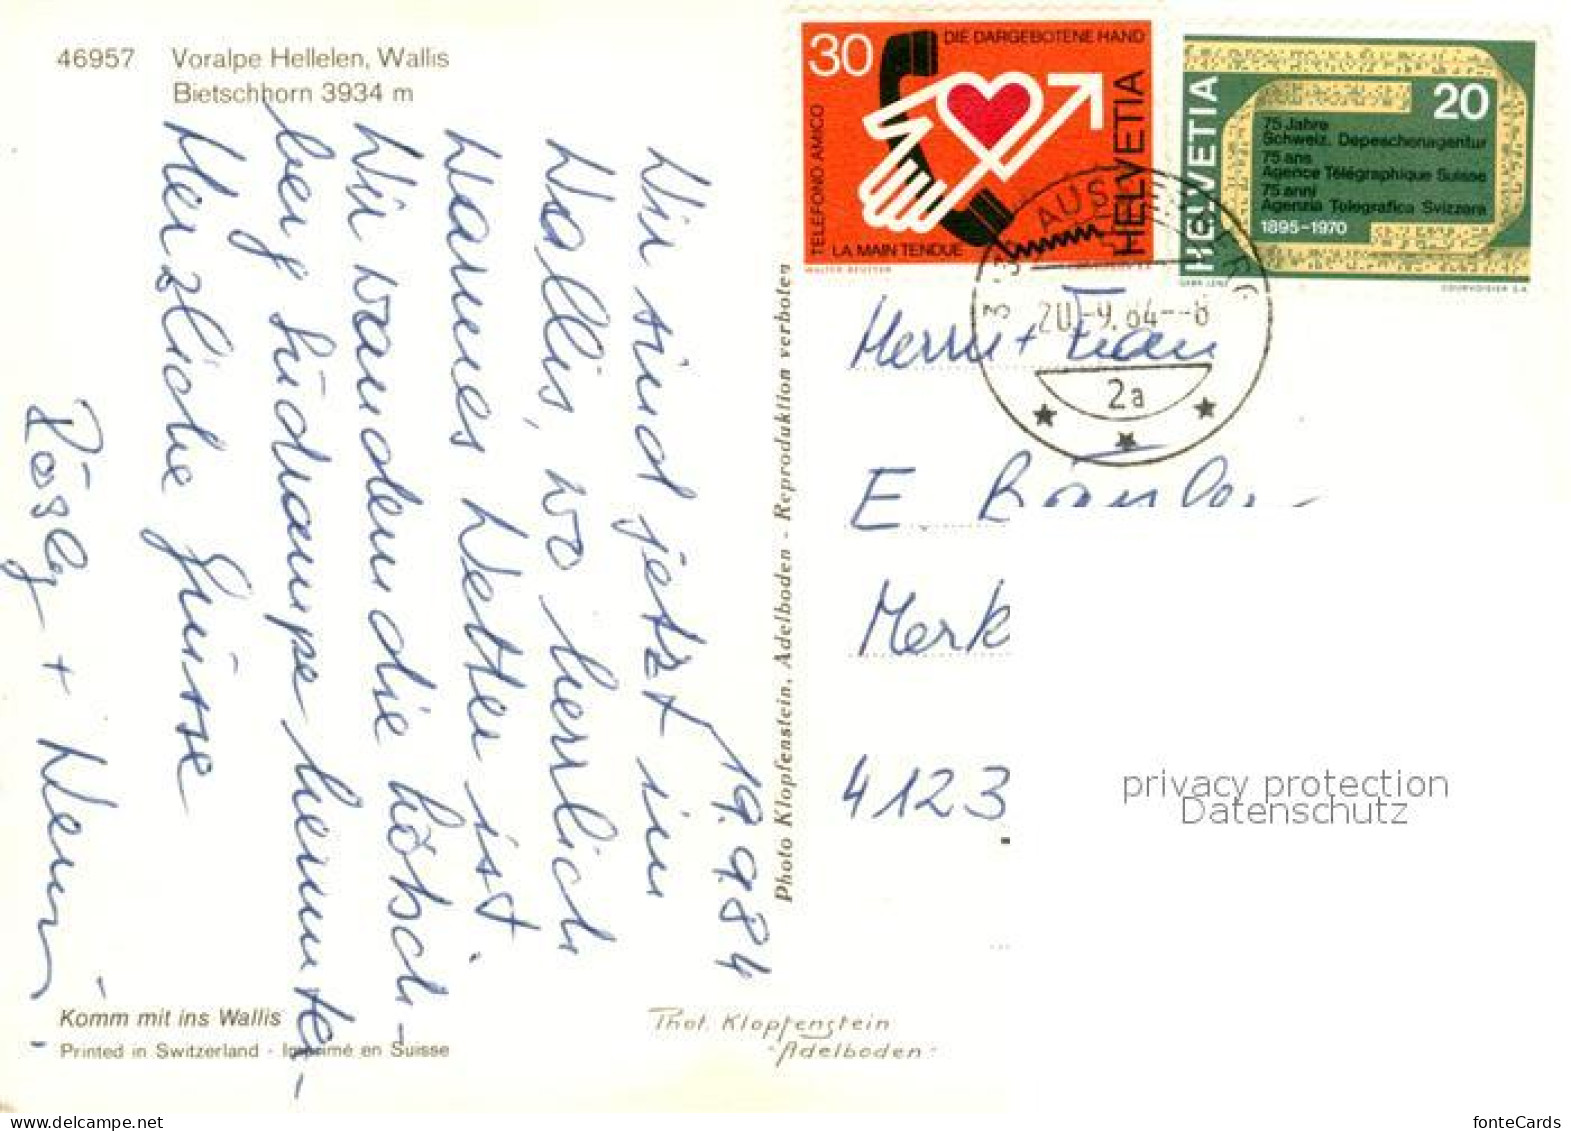 46957 Voralpe Hellelen, Wallis
Bietschhorn 3934 m
19.9.84
Wir sind jetzt im
Wallis, wo herrlich
warmes Wetter ist.
Wir wandern die hübsch-
Südrampe herunter-
Herzliche Grüsse
Rösly + Werni
Komm mit ins Wallis
Printed in Switzerland - Imprimé en Suisse
Phot. Klopfenstein
- Adelboden -
Photo Klopfenstein, Adelboden - Reproduktion verboten
30
DIE DARGEBOTENE HAND
TELEFONO AMICO
LA MAIN TENDUE
HELVETIA
HELVETIA
20
75 Jahre
Schweiz. Depeschenagentur
75 ans
Agence Télégraphique Suisse
75 anni
Agenzia Telegrafica Svizzera
1895-1970
COURVOISIER S.A.
AUS
20.-9.84--8
2a
Herrn + Frau
E
Merk
4123
privacy protection
Datenschutz
fonteCards